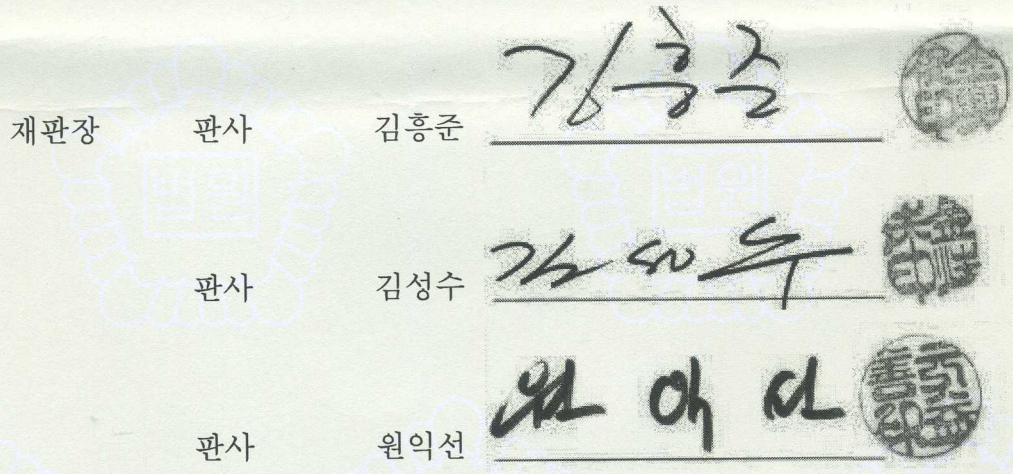 재판장 판사 김흥준 김흥준
판사 김성수 김성수
판사 원익선 원익선
법원 법원